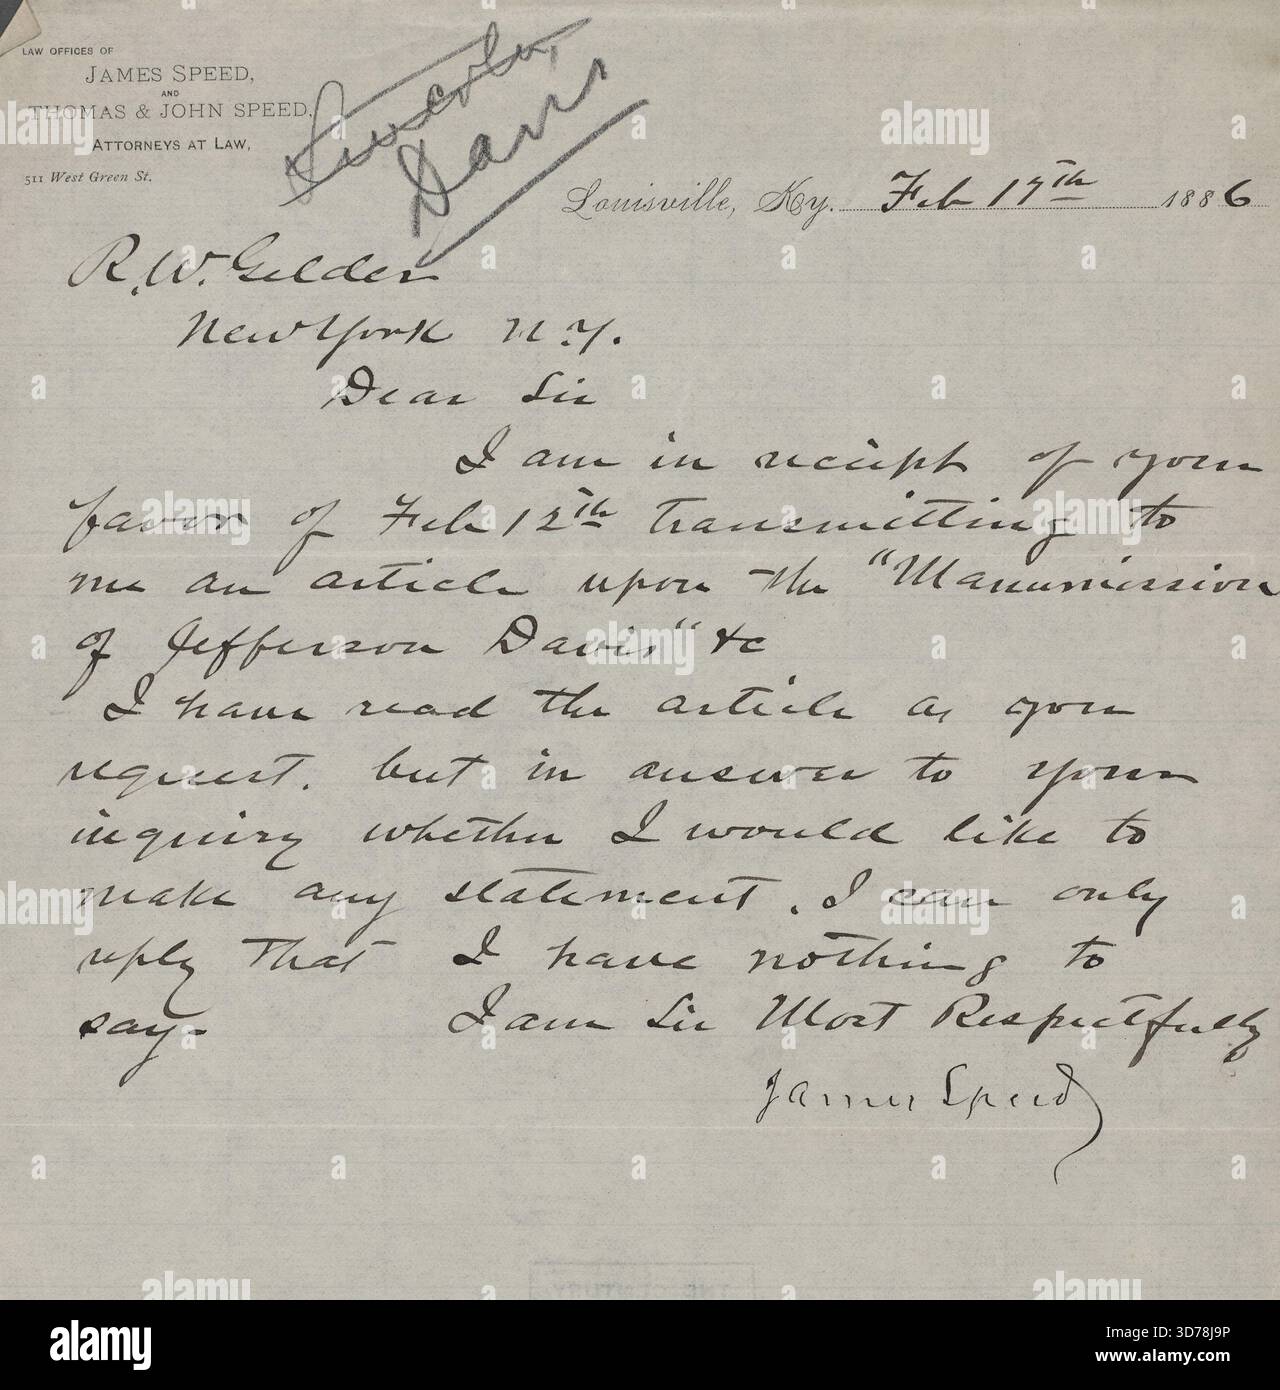 LAW OFFICES OF
JAMES SPEED,
AND
THOMAS & JOHN SPEED,
ATTORNEYS AT LAW,
511 West Green St.
Lincoln,
Davis
Louisville, Ky. Feb 17th 1886
R. W. Gilder
New York N.Y.
Dear Sir
I am in receipt of your
favor of Feb 12th transmitting to
me an article upon the "Manumission
of Jefferson Davis" &c
I have read the article as you
request. but in answer to your
inquiry whether I would like to
make any statement. I can only
reply that I have nothing to
say. I am Sir Most Respectfully
James Speed
THE CENTURY
alamy
Image ID: 3D78J9P
www.alamy.com